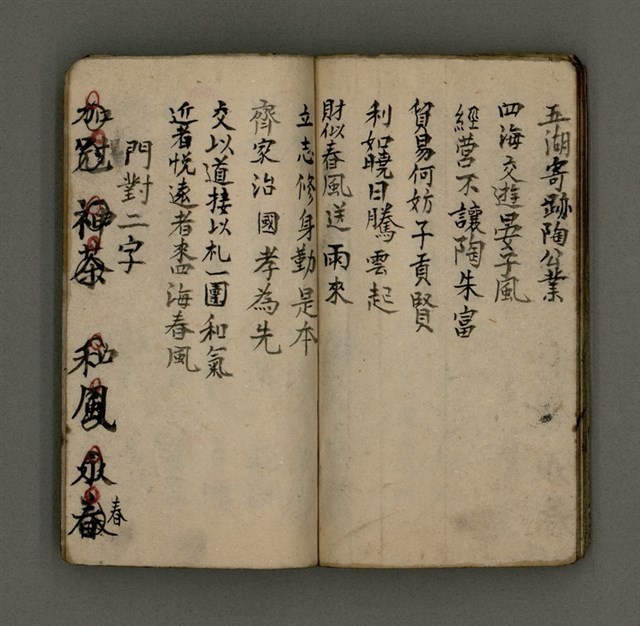 五湖寄跡陶公業
四海交遊晏子風
經營不讓陶朱富
貿易何妨子貢賢
利如曉日騰雲起
財似春風送雨來
立志修身勤是本
齊家治國孝為先
交以道接以礼一團和氣
近者悅遠者來四海春風
門對二字
加冠 神荼 和風 永春
春